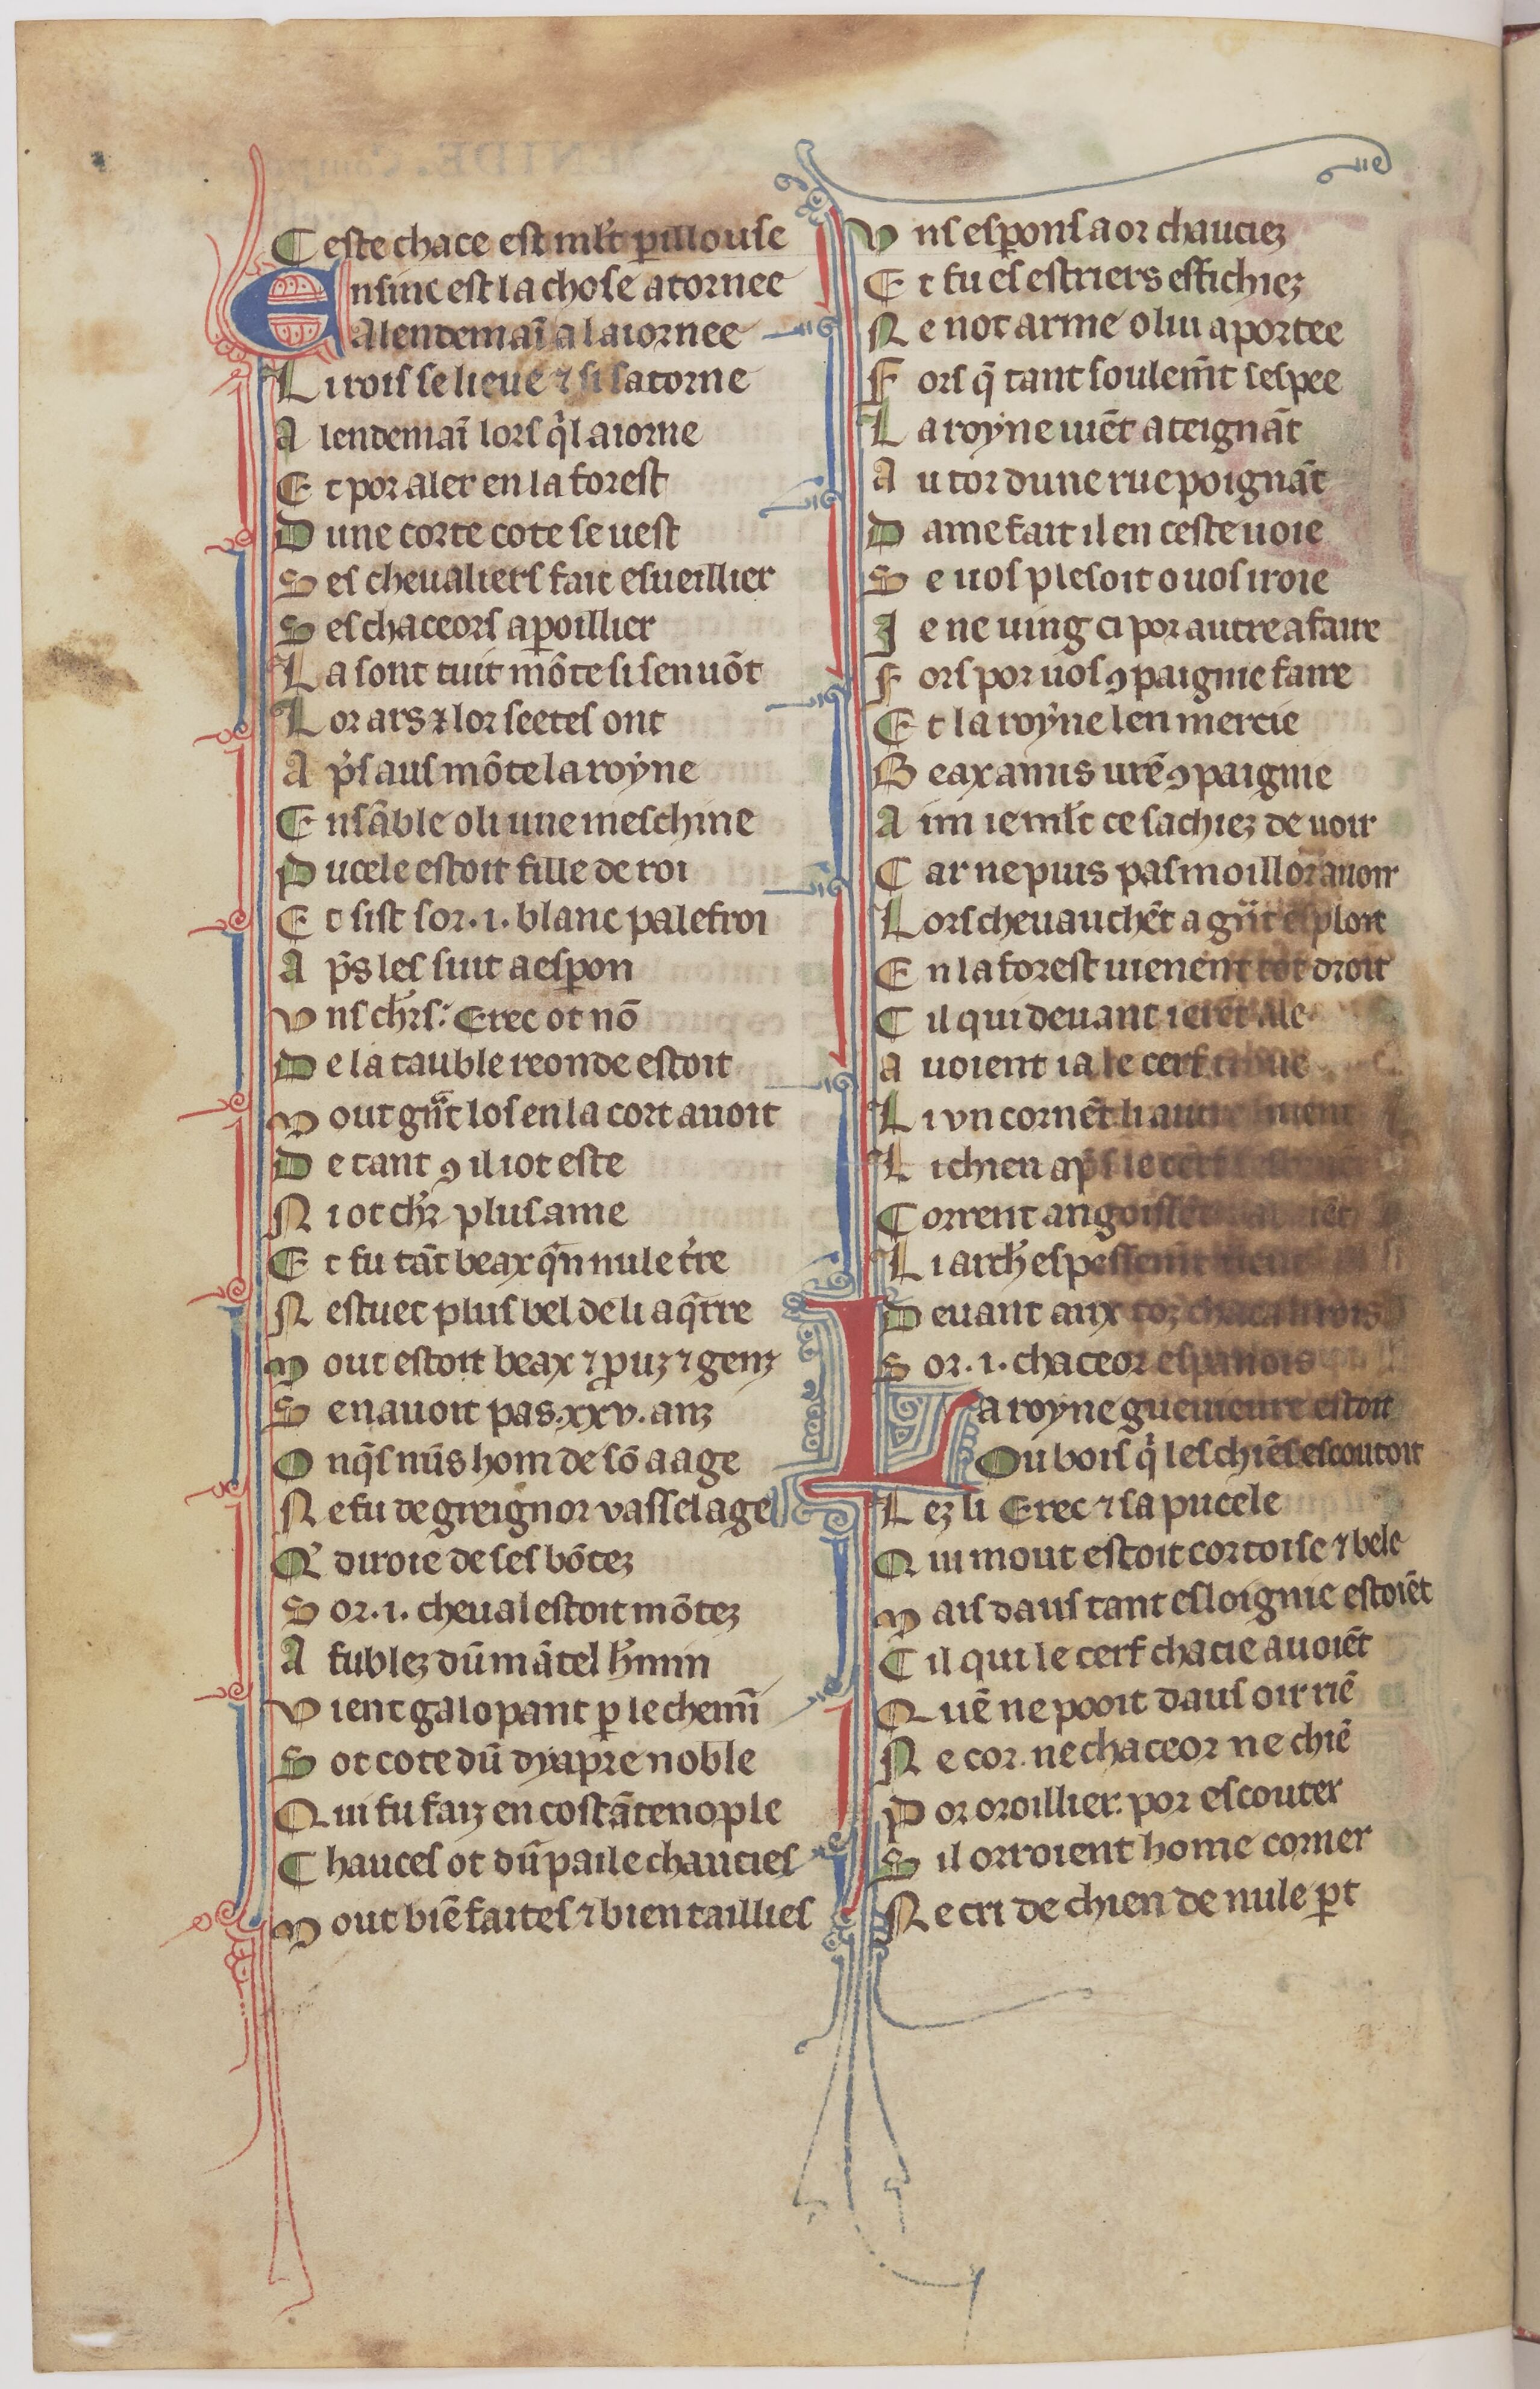 Ceste chace est ml̃t perillouse
Ensinc est la chose atornee
A lendemaī a la iornee
Li rois se lieue ⁊ si satorne
A lendemaī lors qͥl aiorne
Et por aler en la forest
Dune corte cote se uest
Ses cheualiers fait esueillier
Ses chaceors apoillier
La sont tuit mōte si sen uōt
Lor ars ⁊ lor seetes ont
Apᷣs aus mōte la roẏne
Ensāble o li une meschine
Pucele estoit fille de roi
Et sist sor .i. blanc palefroi
Apᷣs les suit a espon
Vns chr̃s: Erec ot nō
De la tauble reonde estoit
Mout gᷓt los en la cort auoit
De tant ꝯ il i ot este
Ni ot chr̃ plus ame
Et fu tāt beax qᷓn nule tᷣre
Nestuet plus bel de li aq̄rre
Mout estoit beax ⁊ ꝓuz ⁊ genz
Se nauoit pas .xxv. anz
Onqᷓs nūs hom de sō aage
Ne fu de greignor vasselage
Qͥ diroie de ses bōtez
Sor .i. cheual estoit mōtez
Afublez dūmātel h̃min
Vient galopant ꝑ le chemī
Sot cote dū dyapre noble
Qui fu faiz en costātenople
Chauces ot dū paile chaucies
Mout biē faites ⁊ bien taillies
Vns esperons a or chauciez
Et fu es estriers effichiez
Ne not arme o lui aportee
Fors q̄ tant soulem̄t sespee
La royne uiēt ateignāt
Au tor dune rue poignāt
Dame fait il en ceste uoie
Se uos plesoit o uos iroie
Je ne uing ci por autre afaire
Fors por uos ꝯpaignie faire
Et la roẏne len mercie
Beax amis ur̄e ꝯpaignie
Aim ie ml̃t ce sachiez de uoir
Car ne puis pas moillor auoir
Lors cheuauchēt a gᷓt esploit
En la forest uienent tot droit
Cil qui deuant ierēt ale
Auoient ia le cerf
Li vn cornēt li autre huient
Li chien apᷣs le cerf
Corrent angoissēt
Li archr̃ espessem̄t
Deuant aux toz chaca li rois
Sor .i. chaceor espanois
La royne guenieure estoit
Ou bois qͥ les chiēs escoutoit
Lez li Erec ⁊ sa pucele
Qui mout estoit cortoise ⁊ bele
Mais daus tant esloignie estoiēt
Cil qui le cerf chacie auoiēt
Quē ne pooit daus oir riē
Ne cor. ne chaceor ne chiē
Por oroillier: por escouter
Sil orroient home corner
Ne cri de chien de nule ꝑt